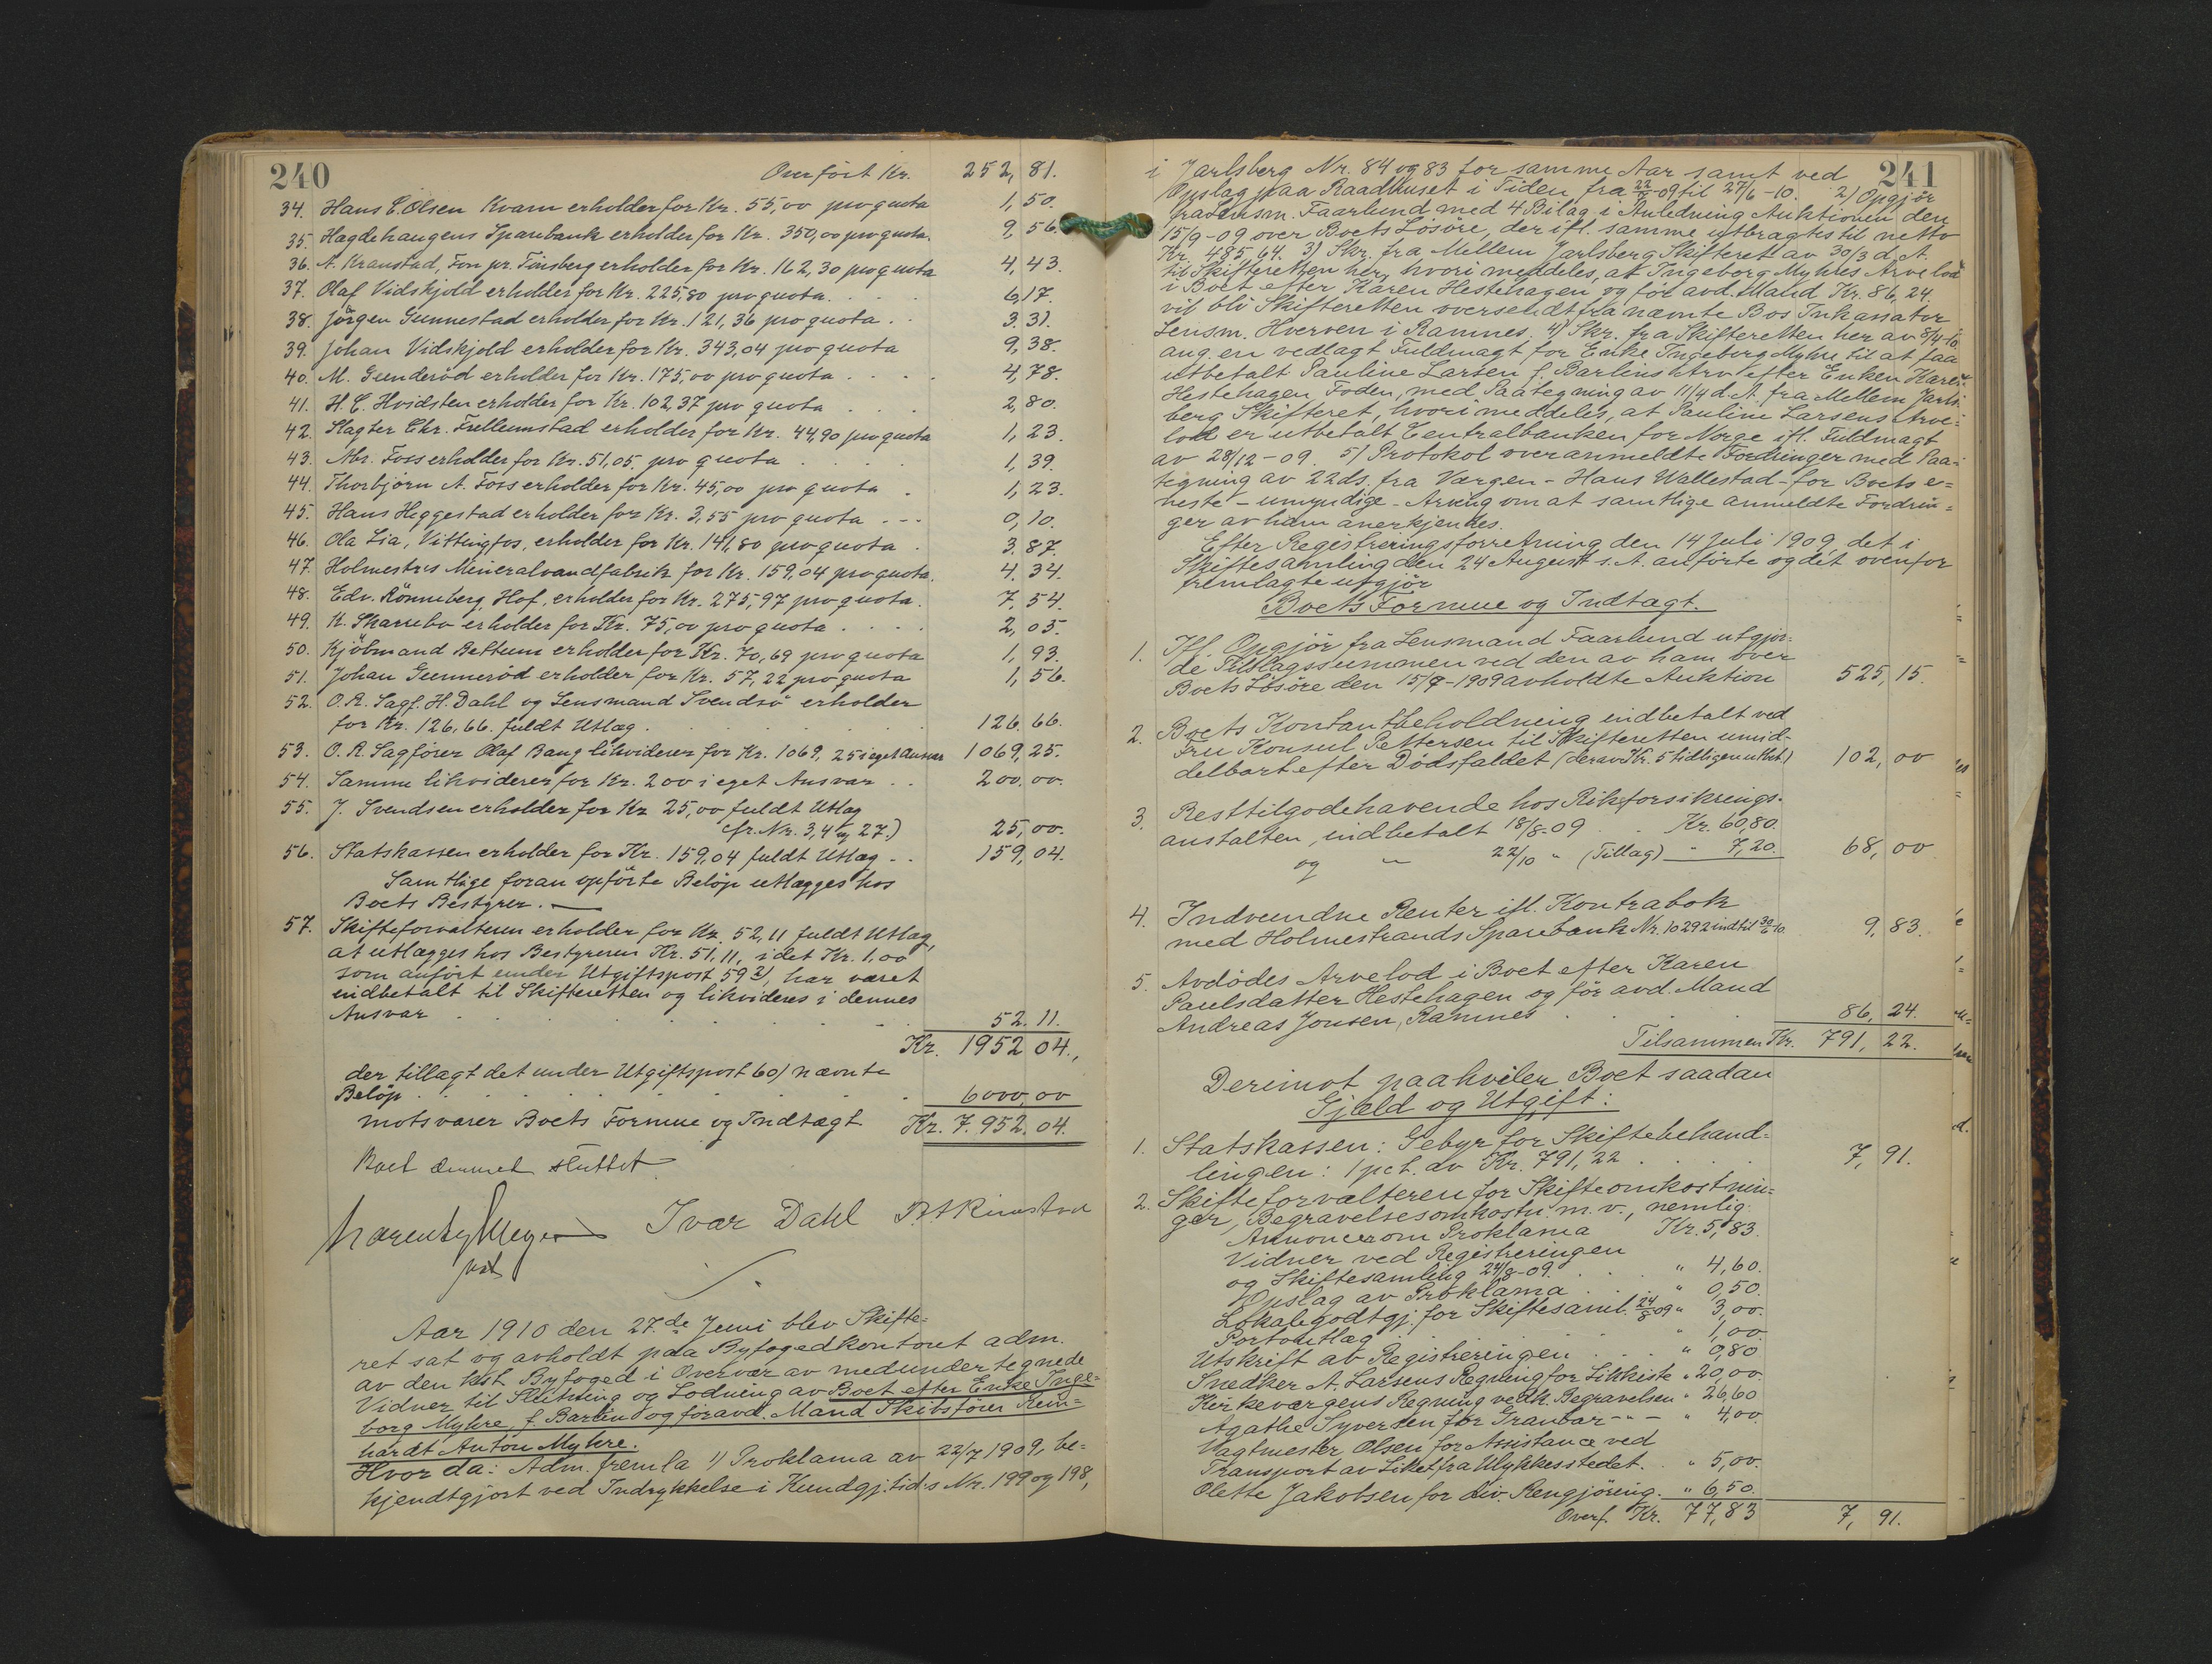 240
Overfört Kr. 252,81.
34. Hans C. Olsen Kvam erholder for Kr. 55,00 pro quota 1,50.
35. Hagdehaugens Sparebank erholder for Kr. 350,00 pro quota. 9,56.
36. A. Kranstad, Fon pr. Tönsberg erholder for Kr. 162,30 pro quota 4,43.
37. Olaf Vidskjold erholder for Kr. 225,80 pro quota. 6,17.
38. Jörgen Gunnestad erholder for Kr. 121,36 pro quota. 3.31.
39. Johan Vidskjold erholder for Kr. 343,04 pro quota 9,38.
40. M. Gunderöd erholder for Kr. 175,00 pro quota. 4,78.
41. H. C. Hvidsten erholder for Kr. 102,37 pro quota 2,80.
42. Slagter Chr. Frellumstad erholder for Kr. 44,90 pro quota 1,23.
43. Abr. Foss erholder for Kr. 51,05. pro quota 1,39.
44. Thorbjörn A. Foss erholder for Kr. 45,00 pro quota. 1,23.
45. Hans Heggestad erholder for Kr. 3,55 pro quota 0,10.
46. Ola Lia, Vittingfos, erholder for Kr. 141,80 pro quota. 3.87.
47. Holmestr.s Mineralvandfabrik for Kr. 159,04 pro quota. 4.34.
48. Edv. Rönneberg, Hof, erholder for Kr. 275,97 pro quota. 7,54.
49. K. Skarrebo erholder for Kr. 75,00 pro quota. 2,05.
50. Kjöbmand Bettum erholder for Kr. 70,69 pro quota 1,93.
51. Johan Gunneröd erholder for Kr. 57,22 pro quota 1,56.
52. O. R. Sagf. H. Dahl og Lensmand Svendsö erholder
for Kr. 126,66. fuldt Utlæg. 126.66.
53. O. R. Sagförer Olaf Bang likviderer for Kr. 1069,25 i eget Ansvar 1069,25.
54. Samme likviderer for Kr. 200 i eget Ansvar. 200.00.
55. J. Svendsen erholder for Kr 25,00 fuldt Utlæg
cfr. Nr. 3,4 og 27.) 25,00.
56. Statskassen erholder for Kr. 159,04 fuldt Utlæg. 159,04.
Samtlige foran opförte Belöp utlægges hos
Boets Bestyrer.
57. Skifteforvalteren erholder for Kr. 52,11 fuldt Utlæg,
at utlægges hos Bestyreren Kr. 51,11, idet Kr. 1,00
som anfört under Utgiftspost 59 2), har været
indbetalt til Skifteretten og likvideres i dennes
Ansvar 52.11.
Kr. 1952 04.,
der tillagt det under Utgiftspost 60) nævnte
Belöp 6000,00
motsvarer Boets Formue og Indtægt Kr. 7.952.04.
Boet dermed sluttet
Ivar Dahl
Aar 1910 den 27.de Juni blev Skifte=
ret sat og avholdt paa Byfogedkontoret adm.
av den kst. Byfoged i Overvær av medundertegnede
Vidner til Slutning og Lodning av Boet efter Enke Inge=
borg Myhre, f. Barlin og föravd. Mand Skibsförer Rein=
hardt Anton Myhre.
Hvor da: Adm. fremla 1) Proklama av 22/7 1909, be=
kjendtgjort ved Indrykkelse i Kundgj.tid:s Nr. 199 og 198,
241
i Jarlsberg Nr. 84 og 83 for samme Aar samt ved
Opslag paa Raadhuset i Tiden fra 22/7-09 til 27/6-10. 2) Opgjör
fra Lensm. Faarlund med 4 Bilag i Anledning Auktionen den
15/9-09 over Boets Lösöre, der ifl. samme utbragtes til netto
Kr. 485,64. 3) Skr. fra Mellem Jarlsberg Skifteret av 30/3 d. A.
til Skifteretten her, hvori meddeles, at Ingeborg Myhres Arvelod
i Boet efter Karen Hestehagen og för avd. Mand Kr. 86,24.
vil bli Skifteretten oversendt fra nævnte Bos Inkassator
Lensm. Hverven i Ramnes. 4) Skr. fra Skifteretten her av 8/4-10
ang. en vedlagt Fuldmagt for Enke Ingeborg Myhre til at faa
utbetalt Pauline Larsen f. Barlins Arv efter Enken Karen
Hestehagen, Foden, med Paategning av 11/4 d. A. fra Mellem Jarls=
berg Skifteret, hvori meddeles, at Pauline Larsens Arve=
lod er utbetalt Centralbanken for Norge ifl. Fuldmagt
av 28/12-09. 5) Protokol over anmeldte Fordringer med Paa=
tegning av 22 ds. fra Værgen - Hans Wallestad - for Boets e=
neste - umyndige - Arving om at samtlige anmeldte Fordrin=
ger av ham anerkjendes.
Efter Registreringsforretning den 14 Juli 1909, det i
Skiftesamling den 24 August s. A. anförte og det ovenfor
fremlagte utgjör
Boets Formue og Indtægt.
1. Ifl. Opgjör fra Lensmand Faarlund utgjor=
de Tilslagssummen ved den av ham over
Boets Lösöre den 15/9-1909 avholdte Auktion 525,15.
2. Boets Kontantbeholdning indbetalt ved
Fru Konsul Pettersen til Skifteretten umid=
delbart efter Dödsfaldet (derav Kr. 5 tidligere utbet.) 102,00
3. Resttilgodehavende hos Rikforsikrings-
anstalten, indbetalt 18/8-09 Kr. 60,80.
og " 22/10 " (Tillæg) " 7,20. 68,00
4. Indvundne Renter ifl. Kontrabok
med Holmestrands Sparebank Nr. 10292 indtil 30/6-10. 9,83.
5. Avdödes Arvelod i Boet efter Karen
Paulsdatter Hestehagen og för avd. Mand
Andreas Jonsen, Ramnes 86,24.
Tilsammen Kr. 791,22.
Derimot paahviler Boet saadan
Gjæld og Utgift:
1. Statskassen: Gebyr for Skiftebehand=
lingen: 1 pct. av Kr. 791,22 7,91.
2. Skifteforvalteren for Skifteomkostnin=
ger, Begravelsesomkostn. m. v., nemlig:
Annoncer om Proklama Kr. 5,83.
Vidner ved Registreringen
og Skiftesamling 24/8-09. " 4,60.
Opslag av Proklama " 0,50.
Lokalegodtgj. for Skiftesaml. 24/8 09 " 3,00.
Portoutlæg " 1,00.
Utskrift av Registreringen " 0,80
Snedker A. Larsens Regning for Likkiste " 20,00.
Kirkevergens Regning vedk. Begravelsen " 26,60
Agathe Syversen for Granbar - " - " 4,00.
Vagtmester Olsen for Assistance ved
Transport av Liket fra Ulykkesstedet. " 5,00.
Olette Jakobsen for div. Rengjöring. " 6,50.
Overf. Kr. 77,83 7,91.